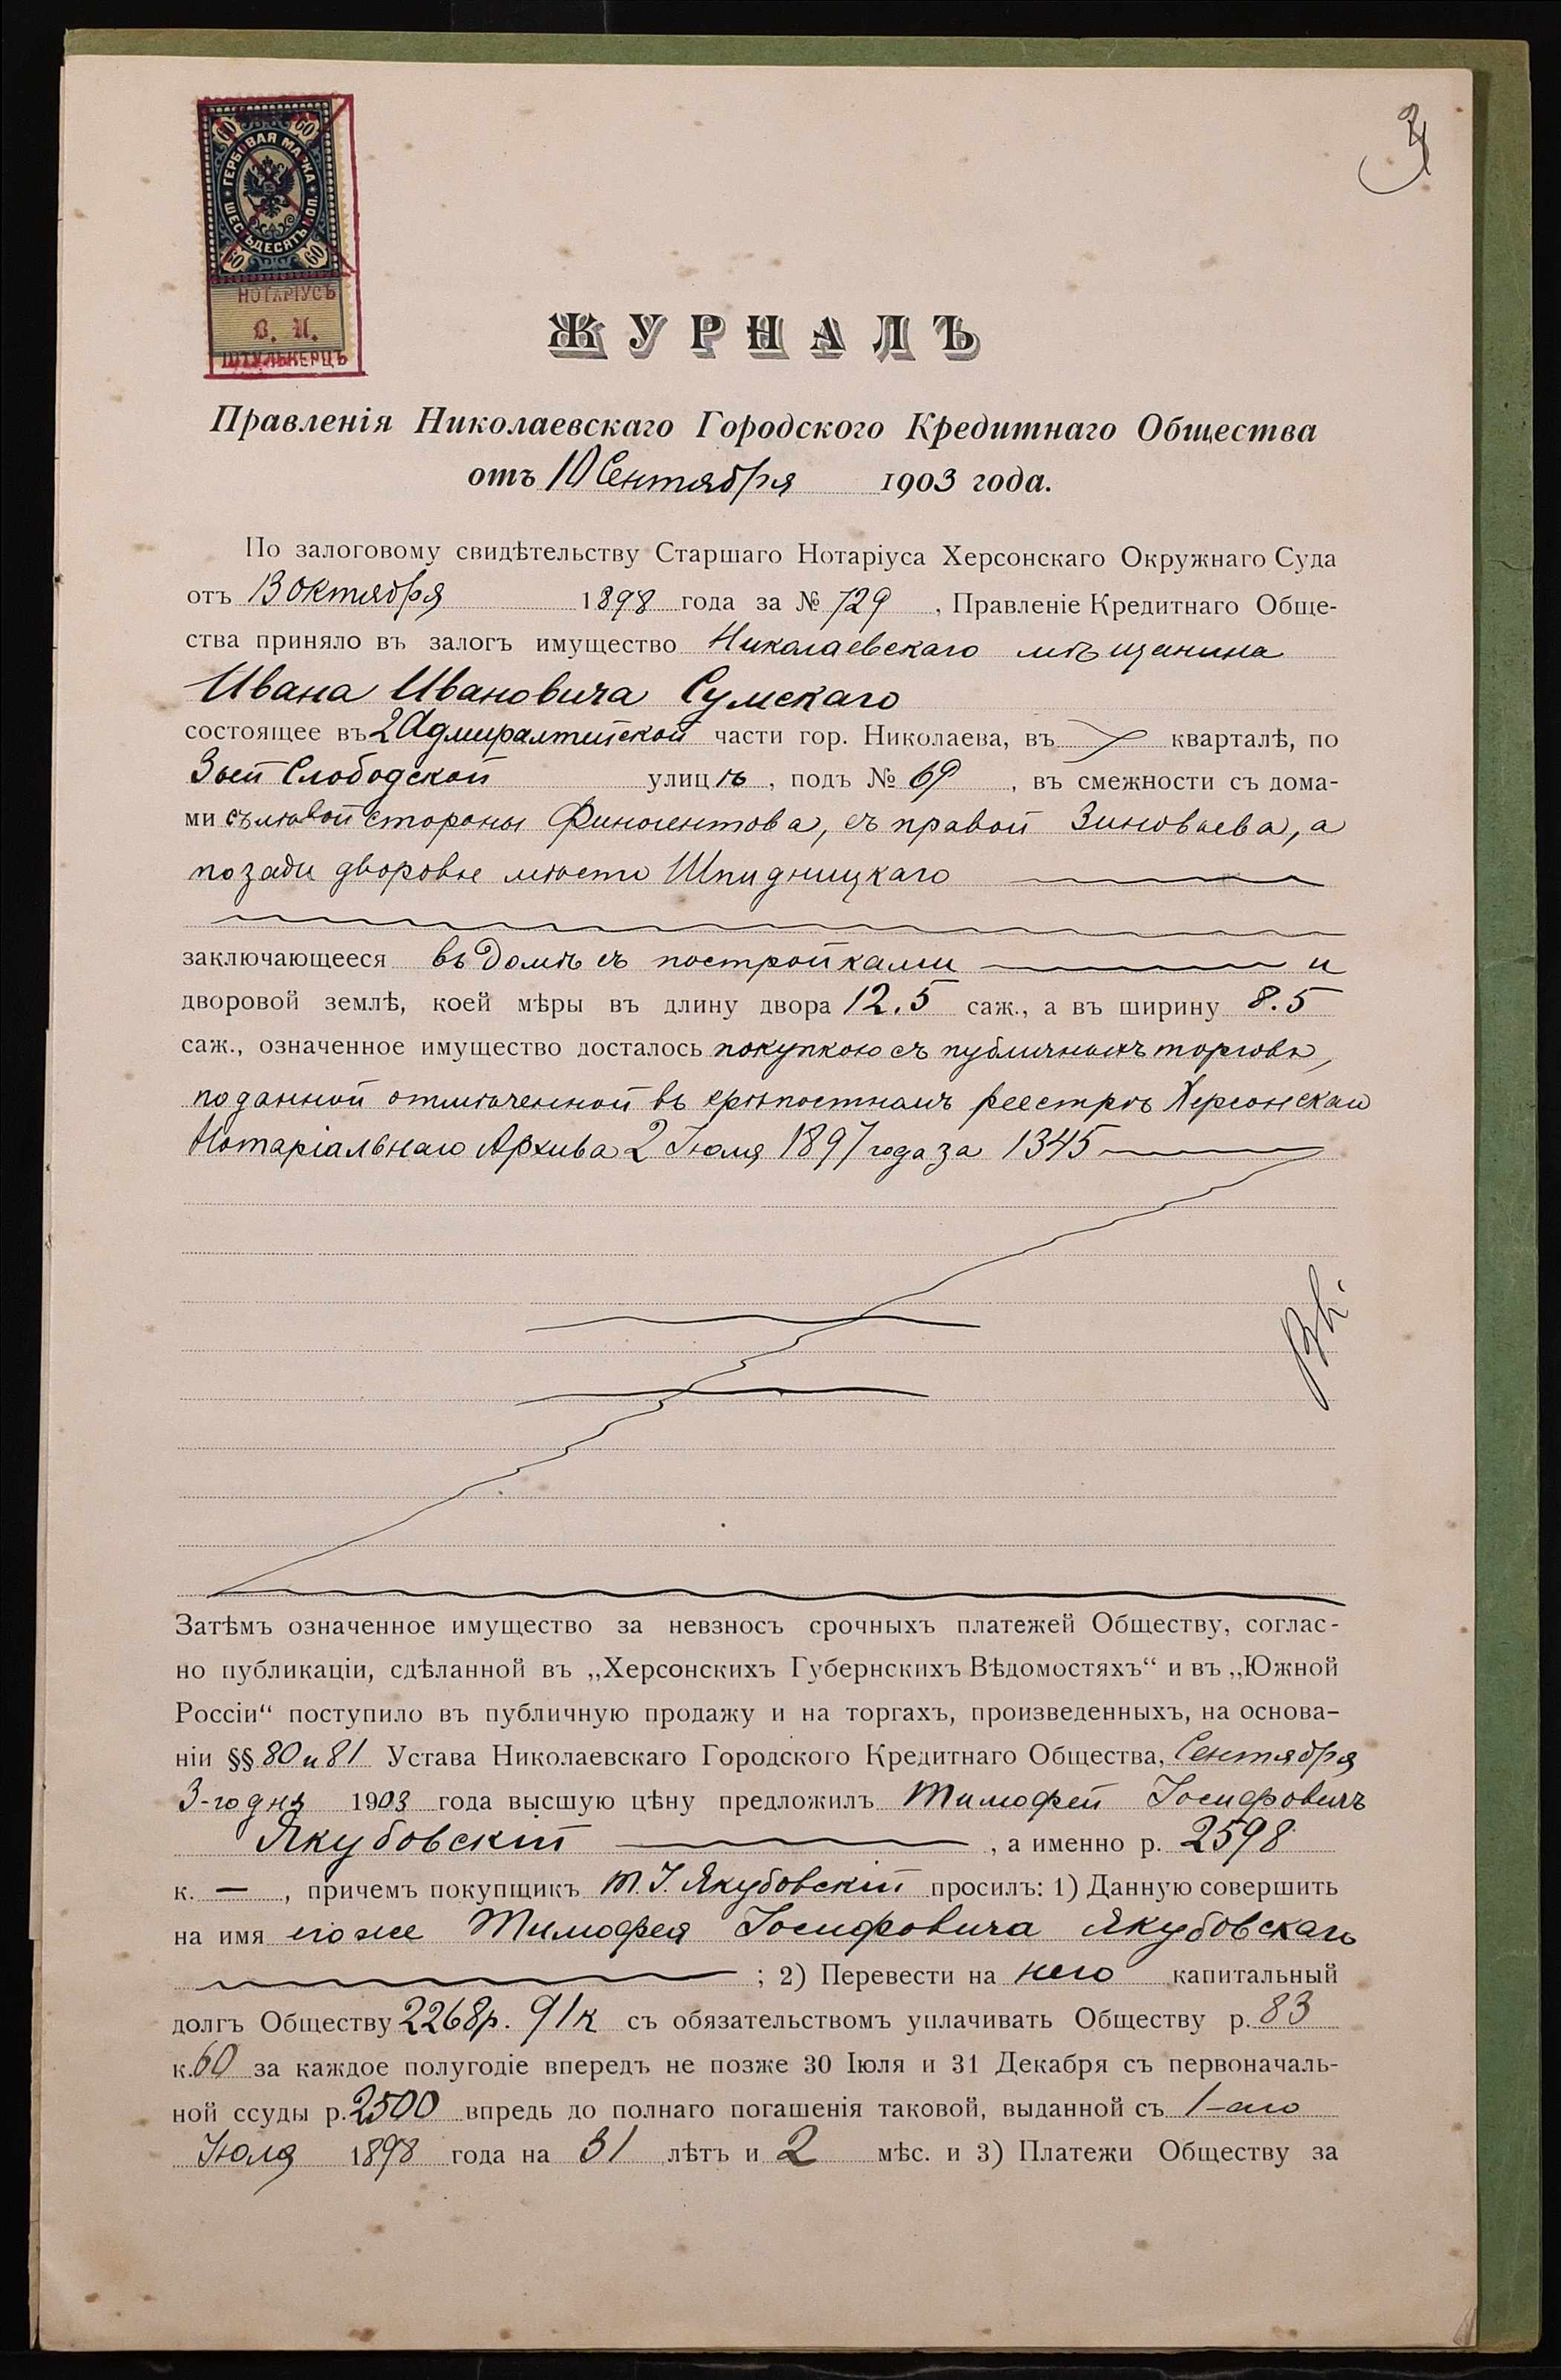 60 60
ГЕРБОВАЯ МАРКА
ШЕСТЬДЕСЯТЪ КОП.
60 60
НОТАРІУСЪ
В. И.
ШТУЛЬКЕРЦЪ
3
ЖУРНАЛЪ
Правленія Николаевскаго Городского Кредитнаго Общества
отъ 10 Сентября 1903 года.
По залоговому свидѣтельству Старшаго Нотаріуса Херсонскаго Окружнаго Суда
отъ 13 Октября 1898 года за № 729 , Правленіе Кредитнаго Обще-
ства приняло въ залогъ имущество Николаевскаго мѣщанина
Ивана Ивановича Сумскаго
состоящее въ 2 Адмиралтейской части гор. Николаева, въ кварталѣ, по
3ьей Слободской улицѣ, подъ № 69 , въ смежности съ дома-
ми съ лѣвой стороны Финогентова, съ правой Зиновьева, а
позади дворовое мѣсто Шпидницкаго
заключающееся въ домѣ съ постройками и
дворовой землѣ, коей мѣры въ длину двора 12.5 саж., а въ ширину 8.5
саж., означенное имущество досталось покупкою съ публичныхъ торговъ,
по данной отмѣченной въ крѣпостномъ реестрѣ Херсонскаго
Нотаріальнаго Архива 2 Іюля 1897 года за 1345
Затѣмъ означенное имущество за невзносъ срочныхъ платежей Обществу, соглас-
но публикаціи, сдѣланной въ „Херсонскихъ Губернскихъ Вѣдомостяхъ“ и въ „Южной
Россіи“ поступило въ публичную продажу и на торгахъ, произведенныхъ, на основа-
ніи §§ 80 и 81 Устава Николаевскаго Городского Кредитнаго Общества, Сентября
3-го дня 1903 года высшую цѣну предложилъ Тимофей Іосифовичъ
Якубовскій , а именно р. 2598
к. — , причемъ покупщикъ Т. І. Якубовскій просилъ: 1) Данную совершить
на имя его же Тимофея Іосифовича Якубовскаго
; 2) Перевести на него капитальный
долгъ Обществу 2268р. 91к съ обязательствомъ уплачивать Обществу р. 83
к. 60 за каждое полугодіе впередъ не позже 30 Іюля и 31 Декабря съ первоначаль-
ной ссуды р. 2500 впредь до полнаго погашенія таковой, выданной съ 1-аго
Іюля 1898 года на 31 лѣтъ и 2 мѣс. и 3) Платежи Обществу за